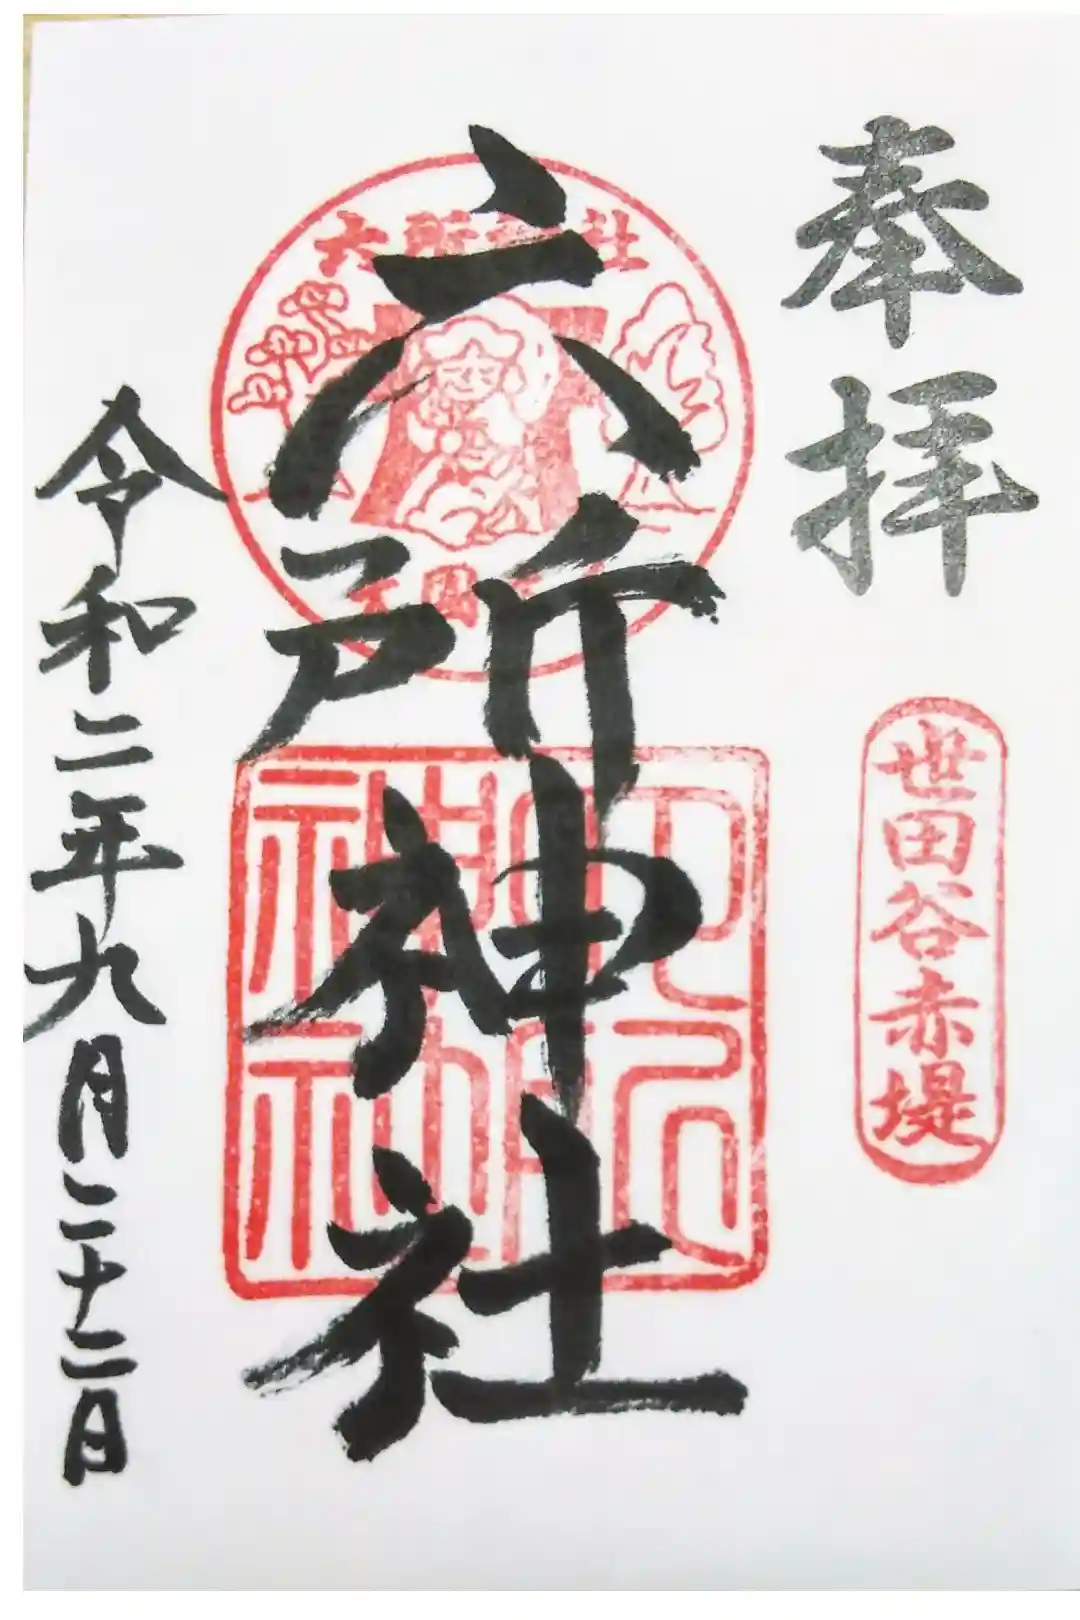 奉拝
世田谷赤堤
六所神社
六所神社
六所神社
令和二年九月二十二日